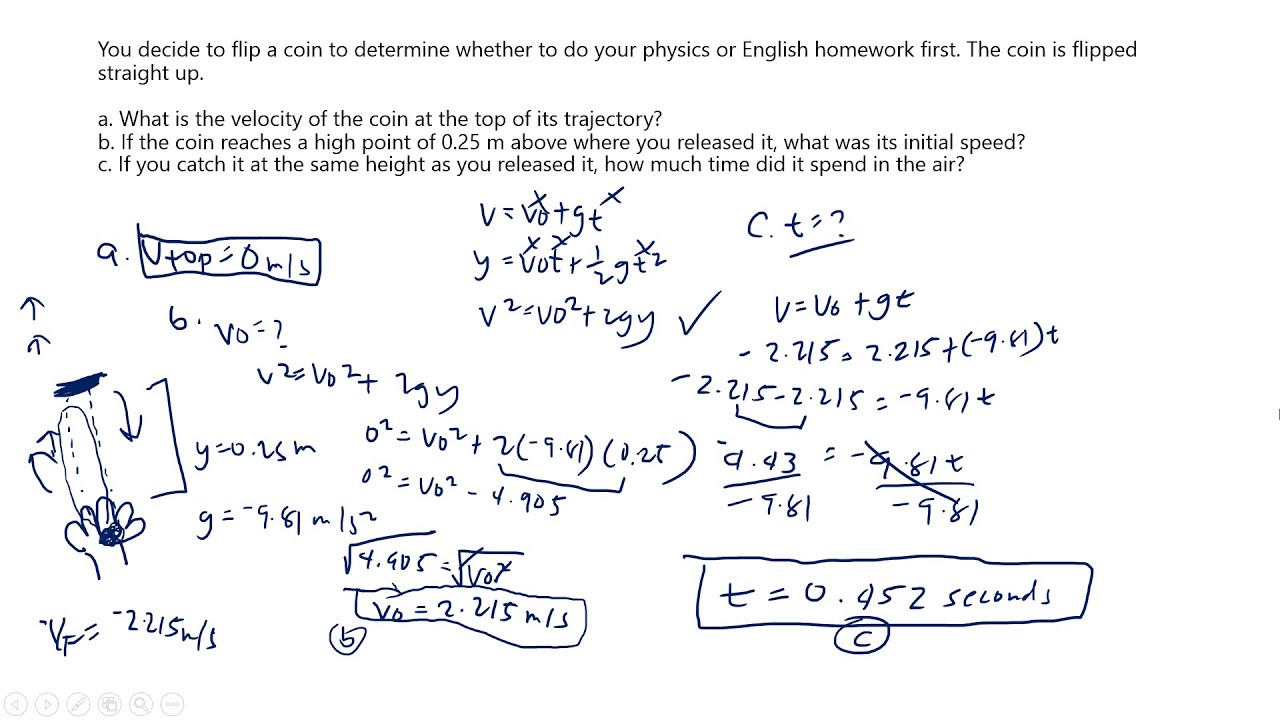 You decide to flip a coin to determine whether to do your physics or English homework first. The coin is flipped
straight up.
a. What is the velocity of the coin at the top of its trajectory?
b. If the coin reaches a high point of 0.25 m above where you released it, what was its initial speed?
c. If you catch it at the same height as you released it, how much time did it spend in the air?
a. Vtop = 0 m/s
b. V0 = ?
V = V0 + gt
y = V0t + 1/2 gt²
V² = V0² + 2gy ✓
V² = V0² + 2gy
y = 0.25 m
g = -9.81 m/s²
0² = V0² + 2(-9.81)(0.25)
0² = V0² - 4.905
√4.905 = √V0²
V0 = 2.215 m/s
b
VF = -2.215 m/s
C. t = ?
V = V0 + gt
-2.215 = 2.215 + (-9.81)t
-2.215 - 2.215 = -9.81t
-4.43 = -9.81t
-9.81 -9.81
t = 0.452 seconds
C